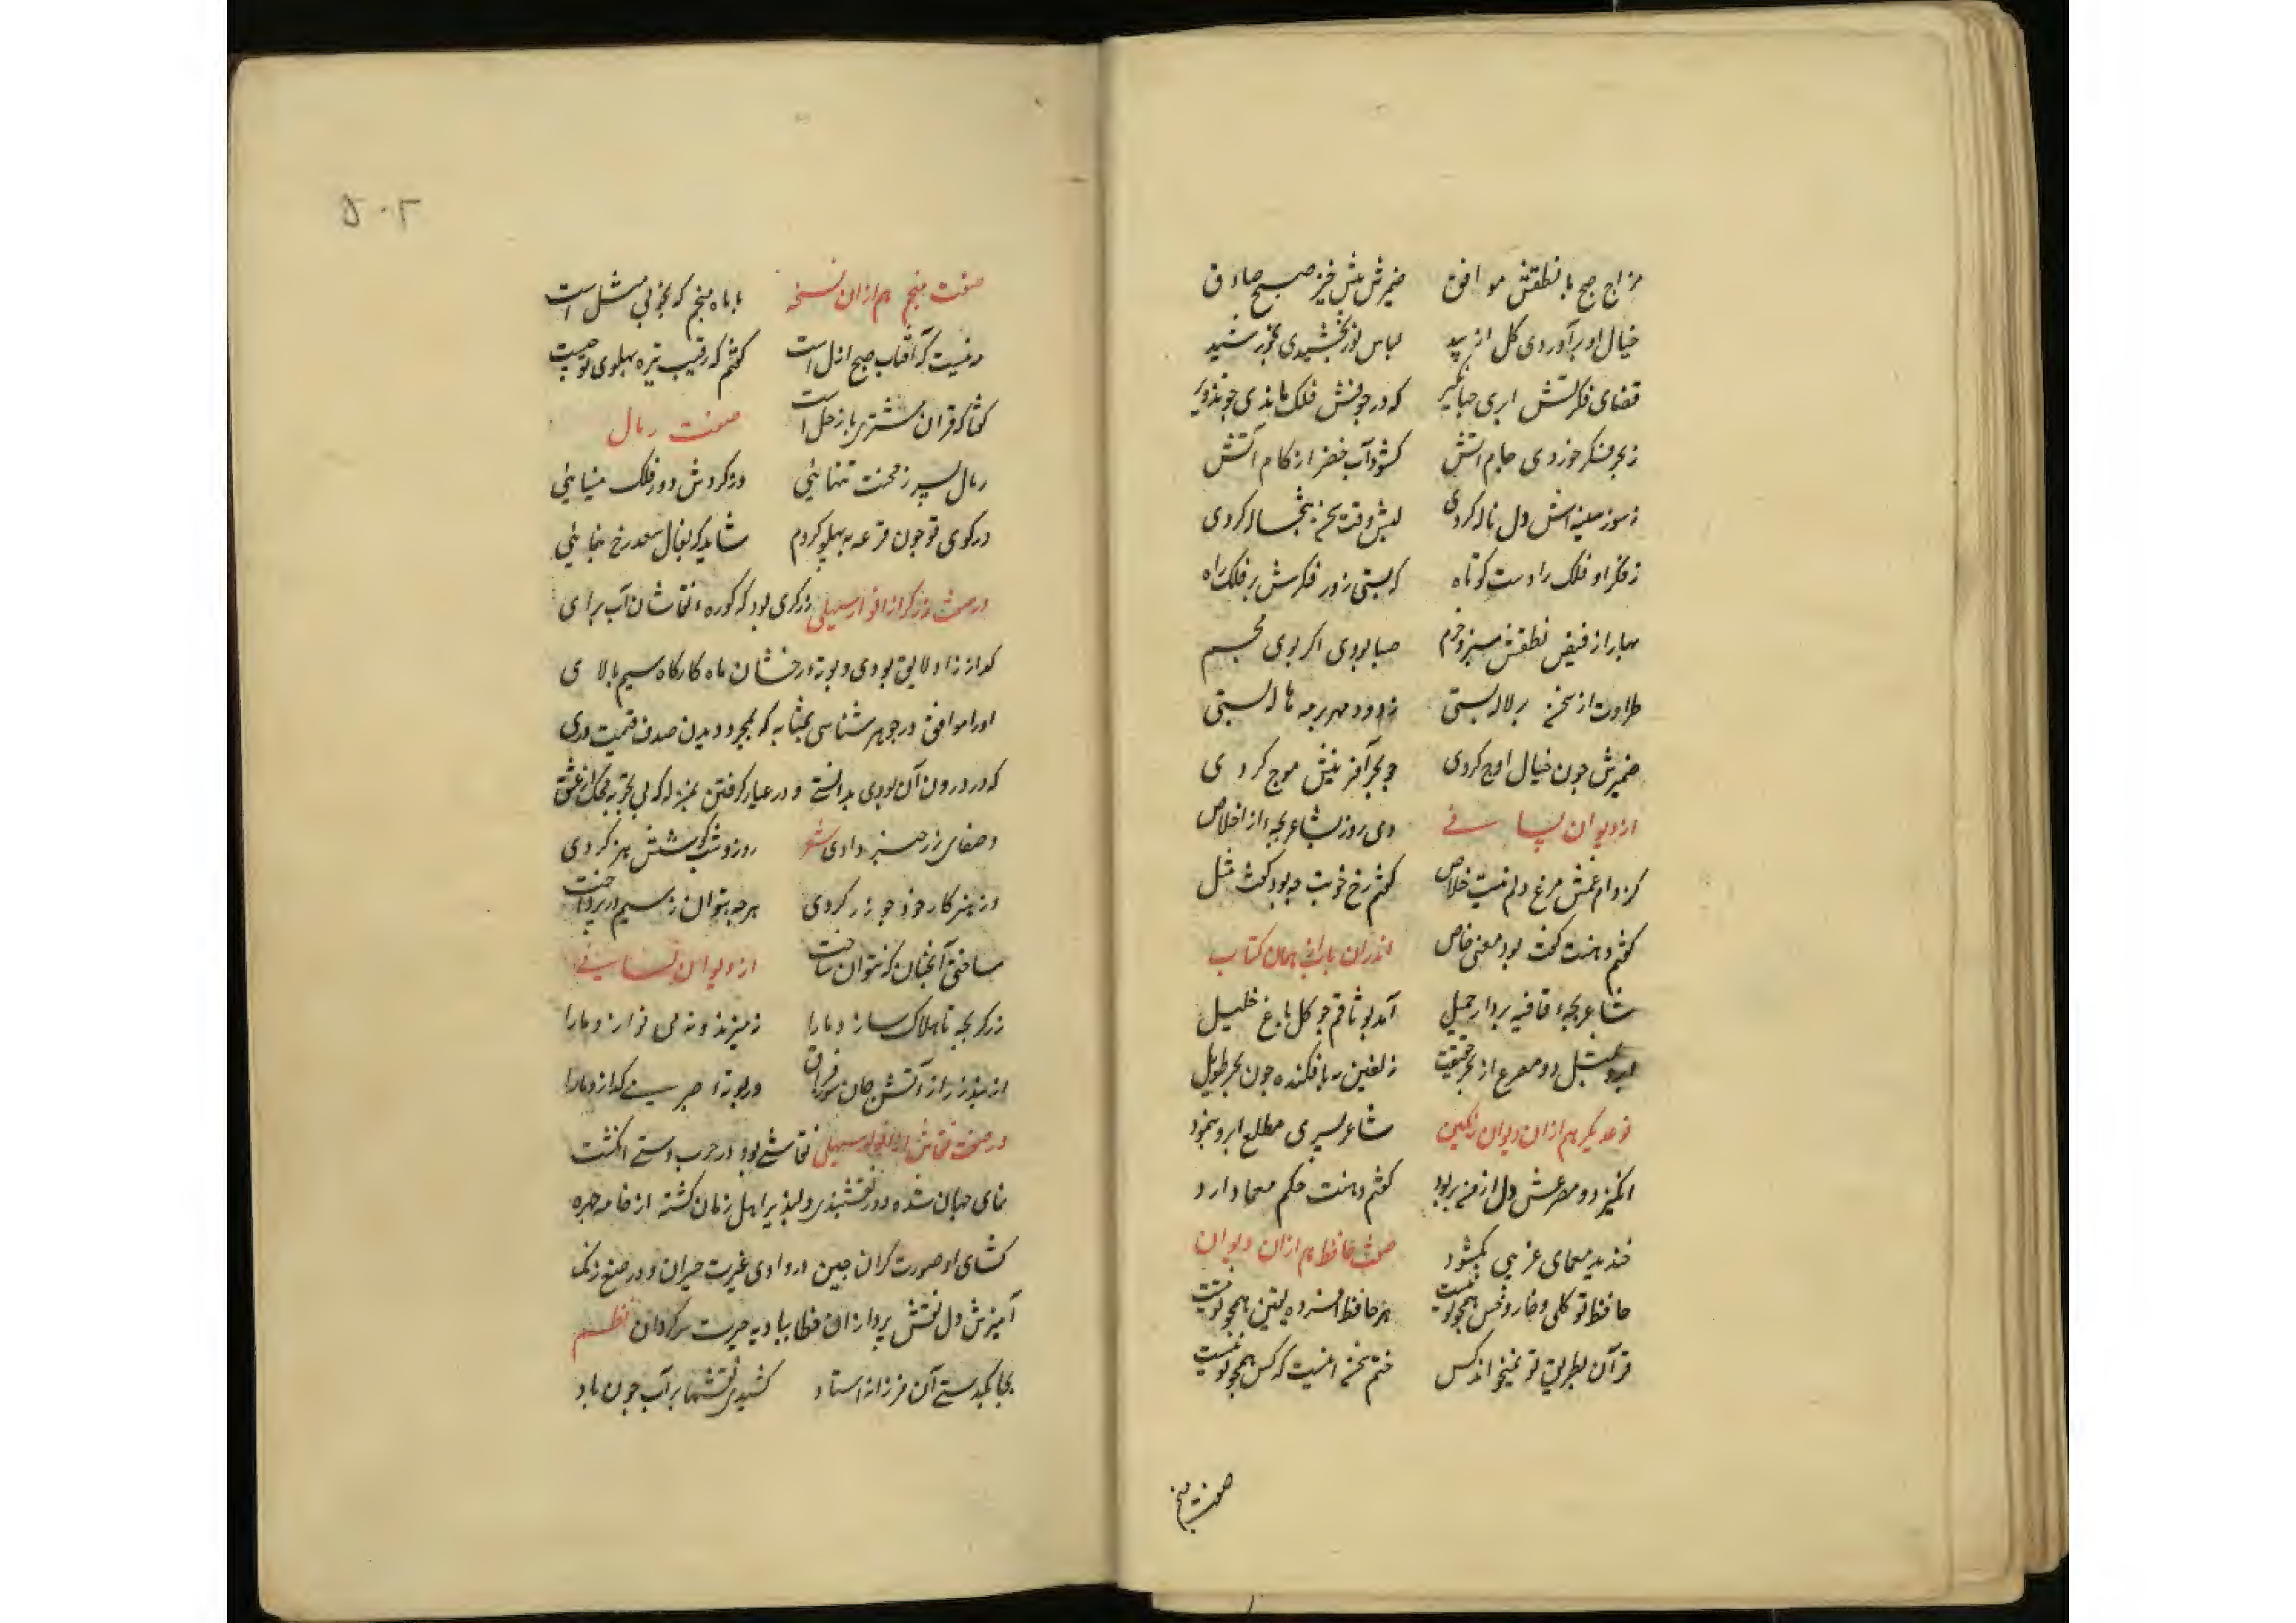 مزاج صبح با نطقش موافق ضمیرش پیش خیز صبح صادق
خیال او برآوردی گل از بید لباس نور بخشیدی بخورشید
فضای فکرتش ابری جهانگیر که در جوفش فلک ماندی چو تدویر
ز بحر فکر خوردی جام آتش گشودی آب خضر از کام آتش
ز سوز سینه‌اش دل ناله کردی لبش وقت سخن تبخاله کردی
ز فکر او فلک را دست کوتاه که بستی زور فکرش بر فلک راه
بهار از فیض نطقش سبز و خرم صبا بودی اگر بوی مجسم
طراوت از سخن بر لاله بستی ز دود مهر بر مه هاله بستی
ضمیرش چون خیال اوج کردی چو بحر آفرینش موج کردی
از دیوان لسانی دی روز بشاعر بچه از اخلاص
کز دام غمش مرغ دلم نیست خلاص گفتم رخ خوبت چه بود گفت مثل
گفتم دهنت گفت بود معنی خاص اندران باب از همان کتاب
شاعر بچه قافیه بردار جمیل آمد بوثاقم چو گل باغ خلیل
ابرو بمثل دو مصرع از بحر حقیقت زلفین بپا فکنده چون بحر طویل
نوع دیگر هم ازان دیوان رنگین شاعر پسری مطلع ابرو بنمود
انگیز دو مصرعش دل از من بربود گفتم دهنت حکم معما دارد
خندید معمای غریبی بگشود صفت حافظ هم ازان دیوان
حافظ تو گلی و خار و خس همچو تو نیست هر حافظ افسرده یقین همچو تو نیست
قرآن بطریق تو نمیخواند کس ختم سخن اینست که کس همچو تو نیست
صفت منجم
۵۰۲
صفت منجم هم ازان نسخه با ماه منجم که بخوبی مثل است
در نسبت که آفتاب صبح ازل است گفتم که رقیب تیره پهلوی تو چیست
گفتا که قران مشتری با زحل است صفت رمال
رمال پسر ز محنت تنهایی وز گردش دور فلک مینایی
در کوی تو چون قرعه به پهلو گردم شاید که بفال سعد رخ بنمایی
در صفت زرگر از انوار سهیلی زرگری بود که کوره آفتابشان آب برای
گداز زر او لایق بودی و بوته درخشان ماه کارگاه سیم پالای
او را موافق در جوهر شناسی بمثابه که بمجرد دیدن صدف قیمت دری
که در درون آن بودی بدانستی و در عیار گرفتن بمنزله که بی تجربه محک از غش
و صفای زر خبر دادی شعر روز و شب کوشش هنر کردی
وز هنر کار خود چو زر کردی هر چه بتوان ز سیم و زر پرداخت
ساختی آنچنان که نتوان ساخت از دیوان لسانی
زرگر بچه تا هلاک سازد ما را ز میزند و نمی نوازد ما را
در بوته صبر میگدازد ما را
در صفت نقاش از انوار سهیلی نقاشی بود در چرب دستی انگشت
نمای جهان شده و در نقشبندی دلپذیر اهل زمان گشته از خامه چهره
گشای او صورتگران چین در وادی غیرت حیران و در صنع رنگ
آمیزش دل نقش پردازان خطا ببادیه حیرت سرگردان نظم
بچابکدستی آن فرزانه استاد کشیدی نقشها بر آب چون باد